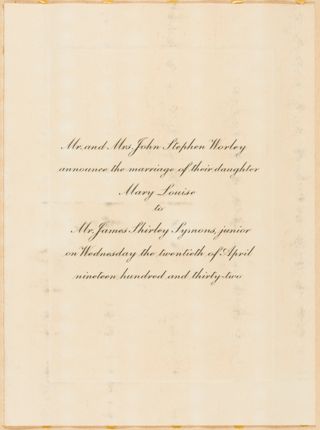 Mr. and Mrs. John Stephen Worley
announce the marriage of their daughter
Mary Louise
to
Mr. James Shirley Symons, junior
on Wednesday the twentieth of April
nineteen hundred and thirty-two